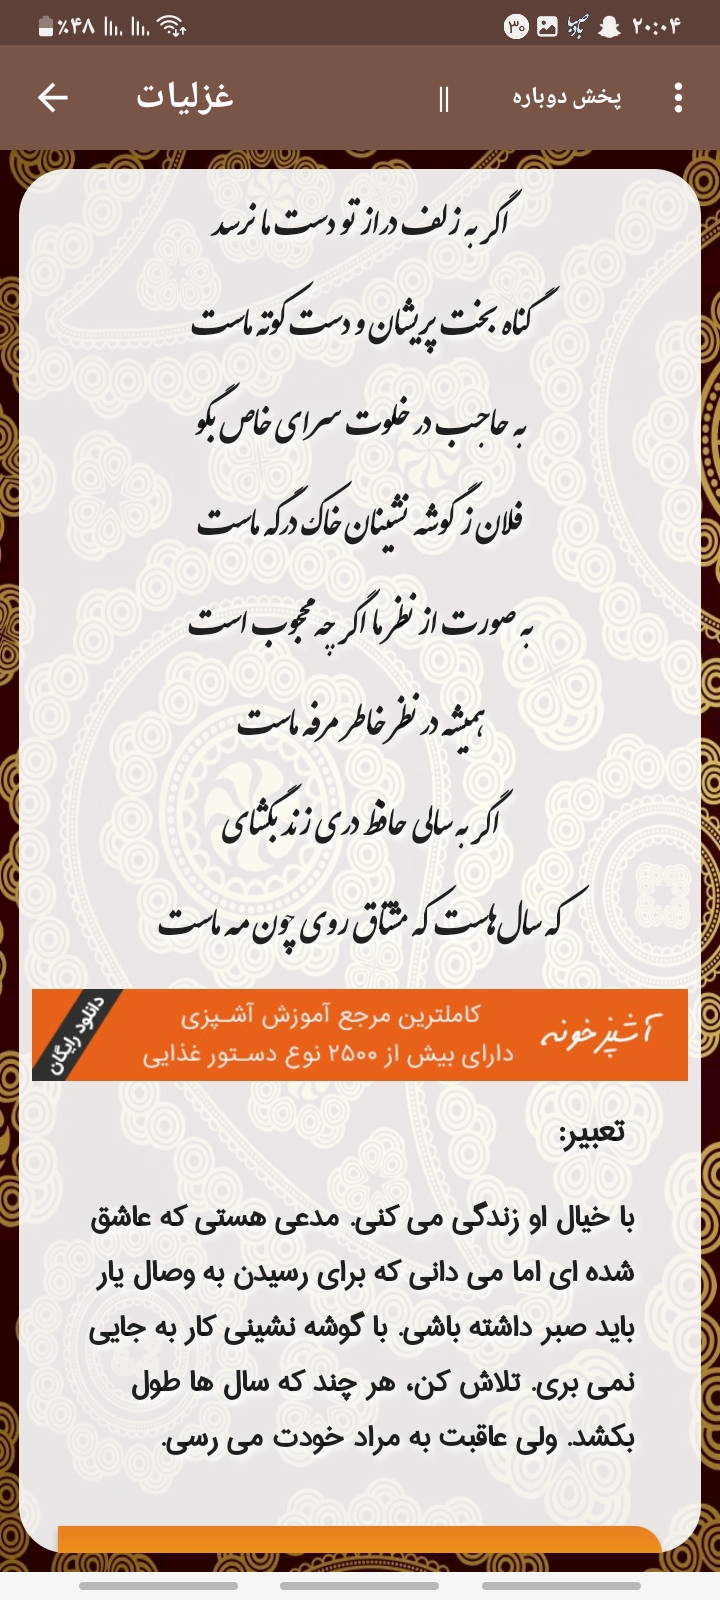 ۲۰:۰۴
۳۰
٪۴۸
غزلیات
||
پخش دوباره
اگر به زلف دراز تو دست ما نرسد
گناه بخت پریشان و دست کوته ماست
به حاجب در خلوت سرای خاص بگو
فلان ز گوشه نشینان خاک درگه ماست
به صورت از نظر ما اگر چه محجوب است
همیشه در نظر خاطر مرفه ماست
اگر به سالی حافظ دری زند بگشای
که سال‌هاست که مشتاق روی چون مه ماست
آشپزخونه
کاملترین مرجع آموزش آشپزی
دارای بیش از ۲۵۰۰ نوع دستور غذایی
دانلود رایگان
تعبیر:
با خیال او زندگی می کنی. مدعی هستی که عاشق
شده ای اما می دانی که برای رسیدن به وصال یار
باید صبر داشته باشی. با گوشه نشینی کار به جایی
نمی بری. تلاش کن، هر چند که سال ها طول
بکشد. ولی عاقبت به مراد خودت می رسی.